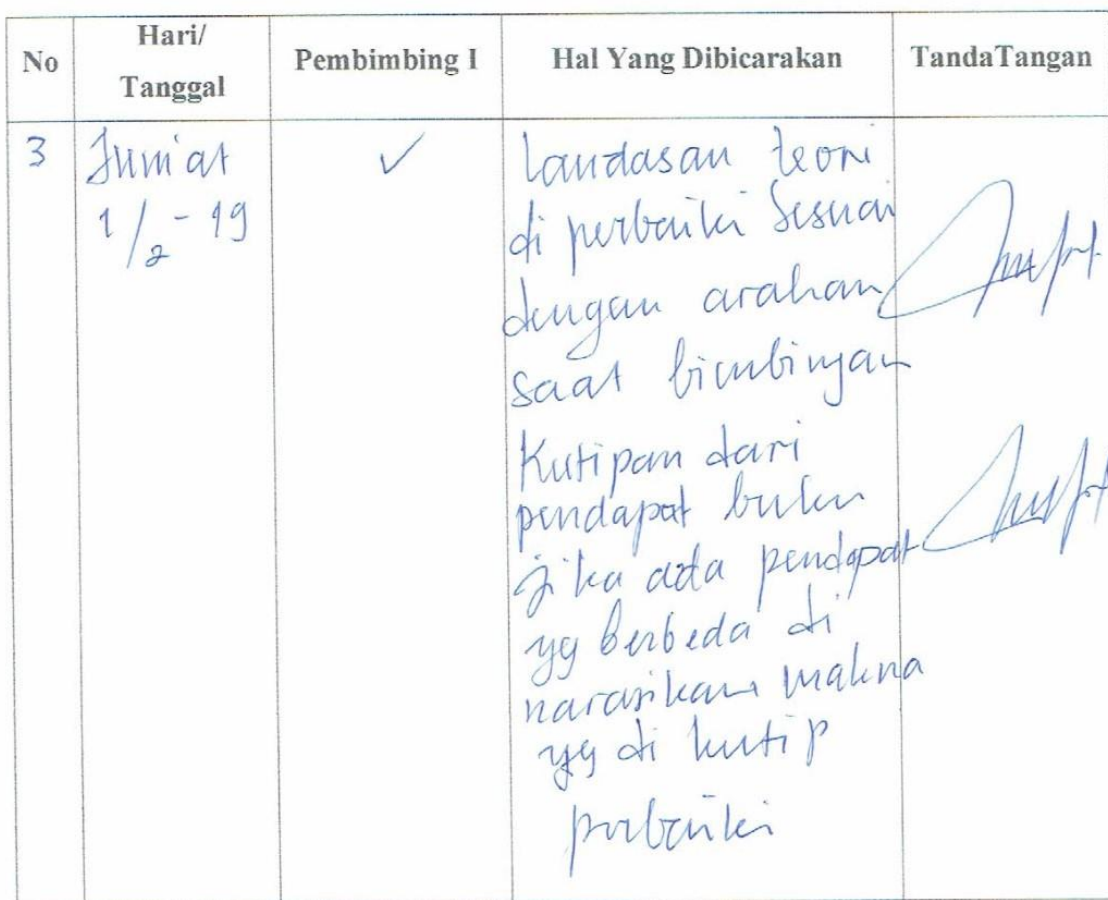 No
Hari/
Tanggal
Pembimbing I
Hal Yang Dibicarakan
TandaTangan
3
Jum'at
1/2 - 19
✓
Landasan teori
di perbaiki Sesuai
dengan arahan
saat bimbingan
Kutipan dari
pendapat buku
jika ada pendapat
yg berbeda di
narasikan makna
yg di kutip
perbaiki